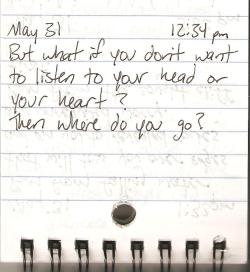 May 31 12:34 pm
But what if you don't want
to listen to your head or
your heart?
Then where do you go?